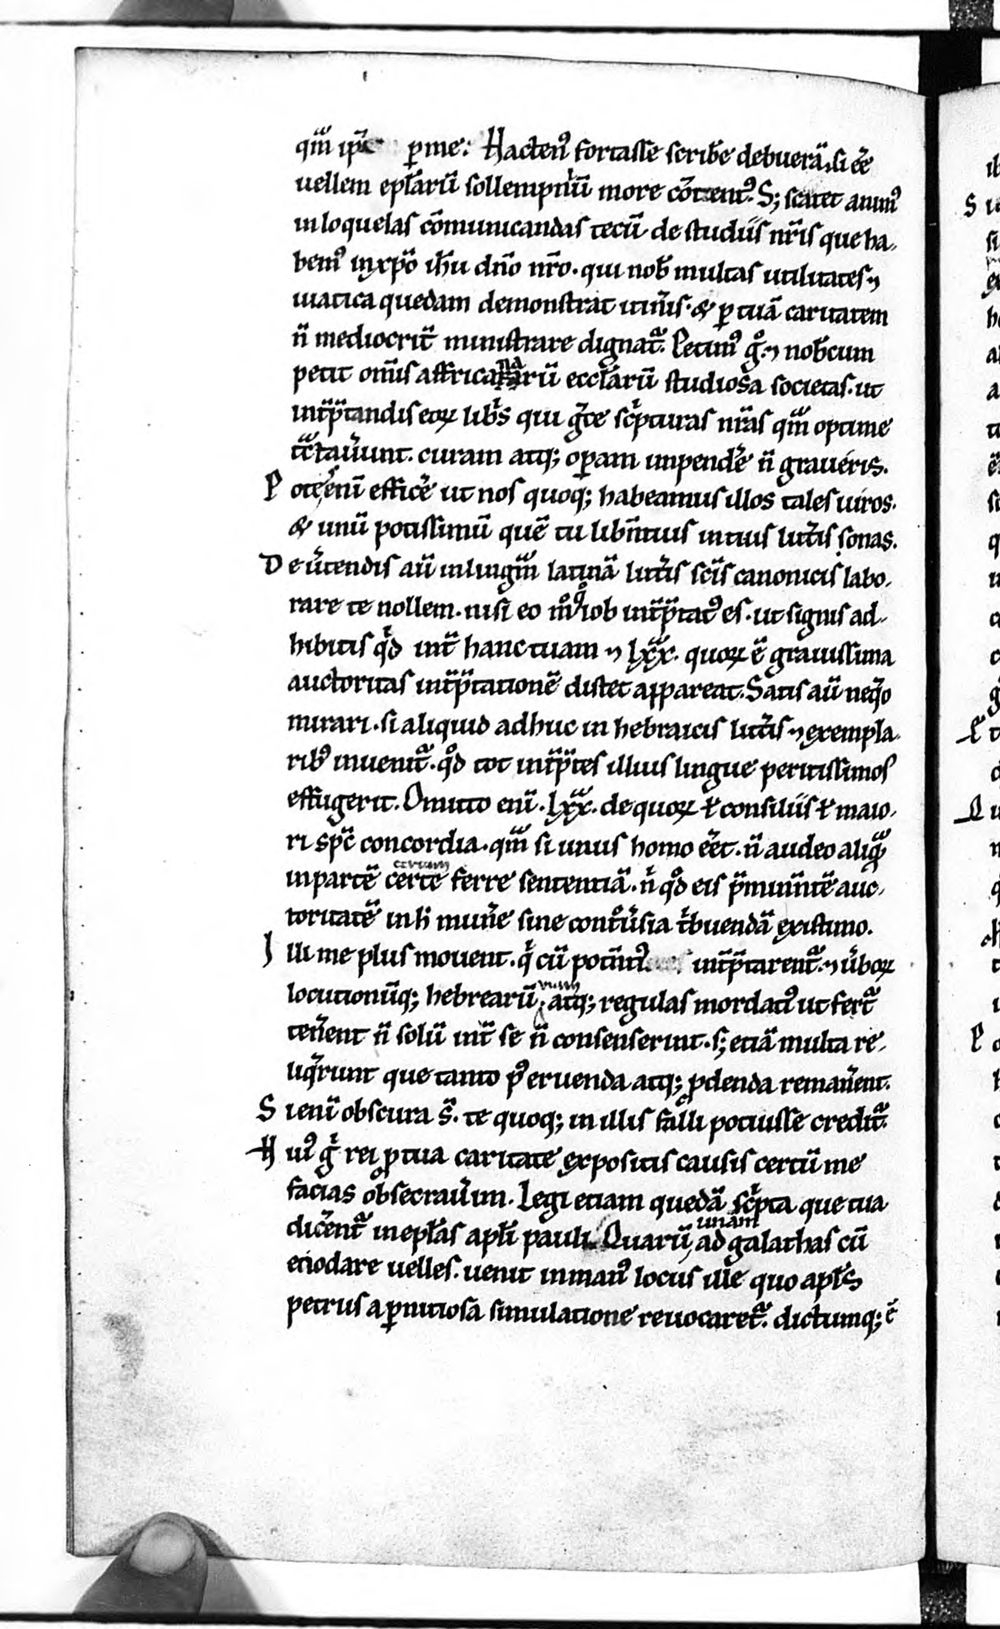 qm̄ ip̄e ꝑ me. Hacten⁹ fortasse scribe debuerā. si eē
uellem epl̄arū sollempniū more cōtent⁹. S; scatet anim⁹
in loquelas cōmunicandas tecū de studiis nr̄is que ha-
bem⁹ in xp̄o ih̄u dn̄o nr̄o. qui nob̄ multas utilitates ⁊
uiatica quedam demonstrat itin̄is. & ꝑ tuā caritatem
n̄ mediocrit̄ ministrare dignat᷑. Petim⁹ g̊. ⁊ nob̄cum
petit om̄is affricanarū eccl̄arū studiosa societas. ut
int̄p̄tandis eoꝝ libr̄s qui gᵉce sc̄pturas nr̄as qm̄ optime
tᵃctauer̄unt. curam atq; oꝑam impendᵉe n̄ graueris.
Potes enī efficᵉe ut nos quoq; habeamus illos tales uiros.
& unū potissimū quē tu libn̄tius in tuis litt̄is sonas.
De ūtendis aū in linguam latinā litt̄is sc̄is canonicis labo-
rare te nollem. nisi eo m̊⁹ iob int̄p̄tat⁹ es. ut signis ad-
hibitis qⁱd int̄ hanc tuam ⁊ lxx. quoꝝ ē grauissima
auctoritas int̄p̄tationē distet appareat. Satis aū neq̊o
mirari. si aliquid adhuc in hebraicis litt̄is ⁊ exempla-
rib⁹ inuenit᷑. qd̊ tot int̄p̄tes illius lingue peritissimos
effugerit. Omitto enī. lxx. de quoꝝ ł consiliis ł maio-
ri sp̄c concordia. qᵃm si unus homo eēt. n̄ audeo aliqᵃm
in partē certe certam ferre sententiā. nⁱ qd̊ eis p̄minn̄tē auc-
toritatē in h̄ mun̄e sine cont̊ūsia tⁱbuendā existimo.
Illi me plus mouent. qⁱ cū post̄i⁹ int̄p̄tarent᷑. ⁊ ūboꝝ
locutionūq; hebrearū uiam atq; regulas mordaci⁹ ut fert᷑
ten̄ent n̄ solū int̄ se n̄ consenserint. s; etiā multa re-
liqr̄unt que tanto p⁹ eruenda atq; ꝓdenda reman̄ent.
Si enī obscura s̄. te quoq; in illis falli potuisse credit᷑.
Hui⁹ gⁱ rei ꝓ tua caritate expositis causis certū me
facias obsecrauerim. Legi etiam quedā scⁱpta que tua
dic̄ent᷑ in epl̄as apl̄i pauli. Quarū unam ad galathas cū
enodare uelles. uenit in man⁹ locus ille quo apl̄s
petrus a ꝑnitiosa simulatione reuocaret᷑. dictumq; ē